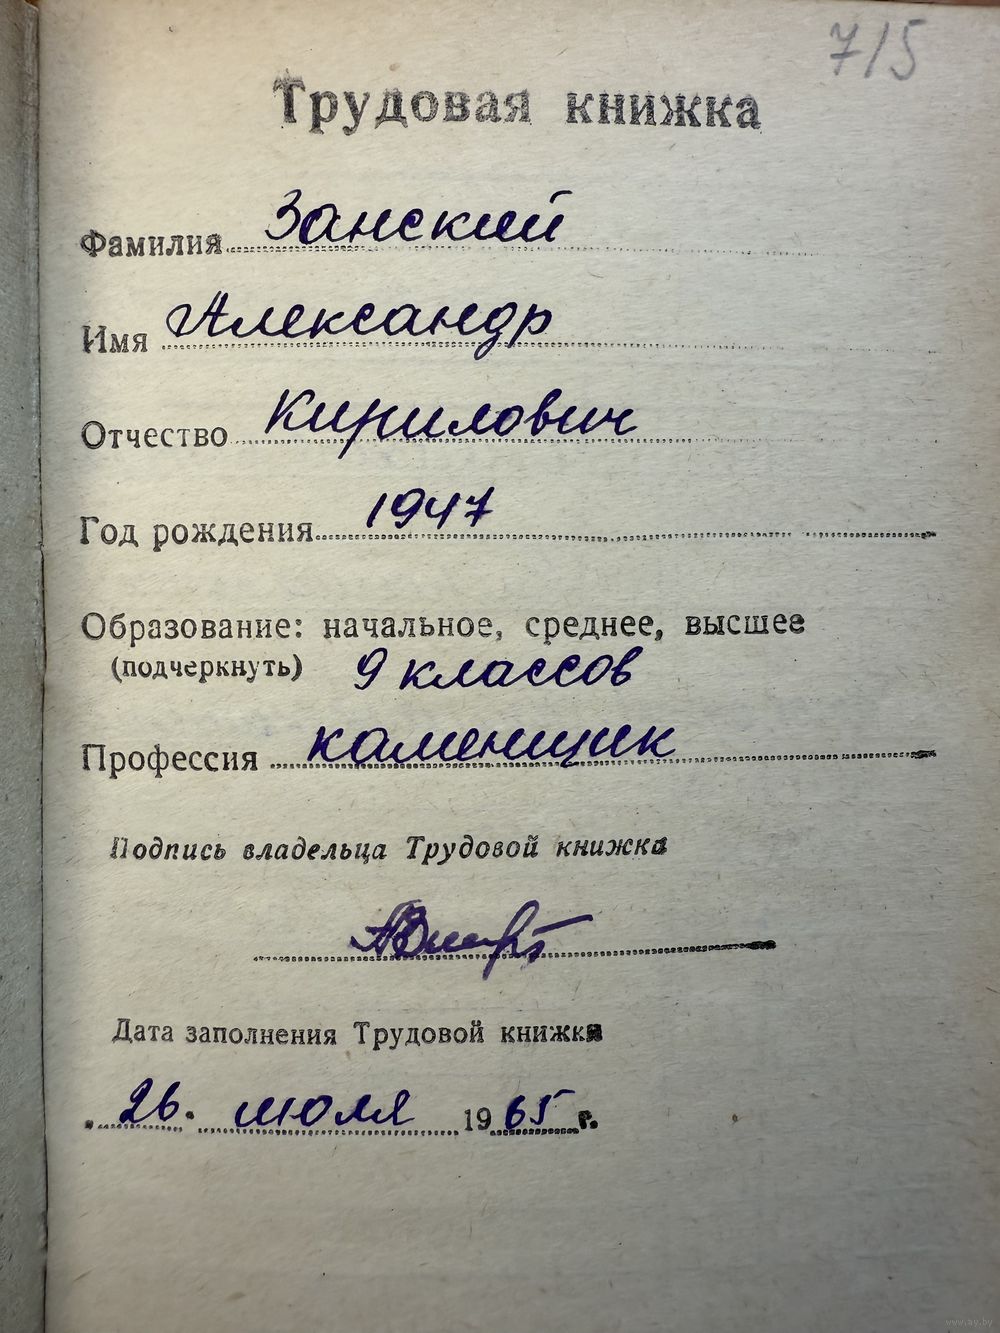 7/5
Трудовая книжка
Фамилия Занский
Имя Александр
Отчество Кирилович
Год рождения 1947
Образование: начальное, среднее, высшее
(подчеркнуть) 9 классов
Профессия каменщик
Подпись владельца Трудовой книжки
Дата заполнения Трудовой книжки
26. июля 1965 г.
www.ay.by